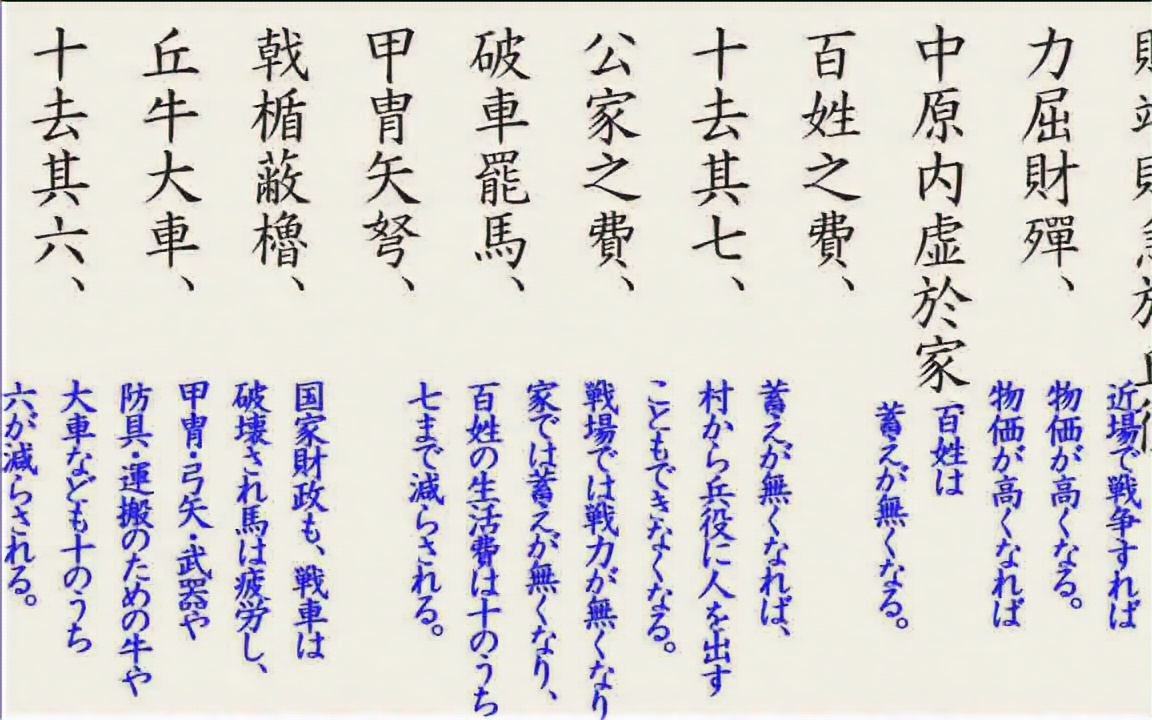 力屈財殫、
中原内虚於家
百姓之費、
十去其七、
公家之費、
破車罷馬、
甲冑矢弩、
戟楯蔽櫓、
丘牛大車、
十去其六、
近場で戦争すれば
物価が高くなる。
物価が高くなれば
百姓は
蓄えが無くなる。
蓄えが無くなれば、
村から兵役に人を出す
こともできなくなる。
戦場では戦力が無くなり
家では蓄えが無くなり、
百姓の生活費は十のうち
七まで減らされる。
国家財政も、戦車は
破壊され馬は疲労し、
甲冑・弓矢・武器や
防具・運搬のための牛や
大車なども十のうち
六が減らされる。